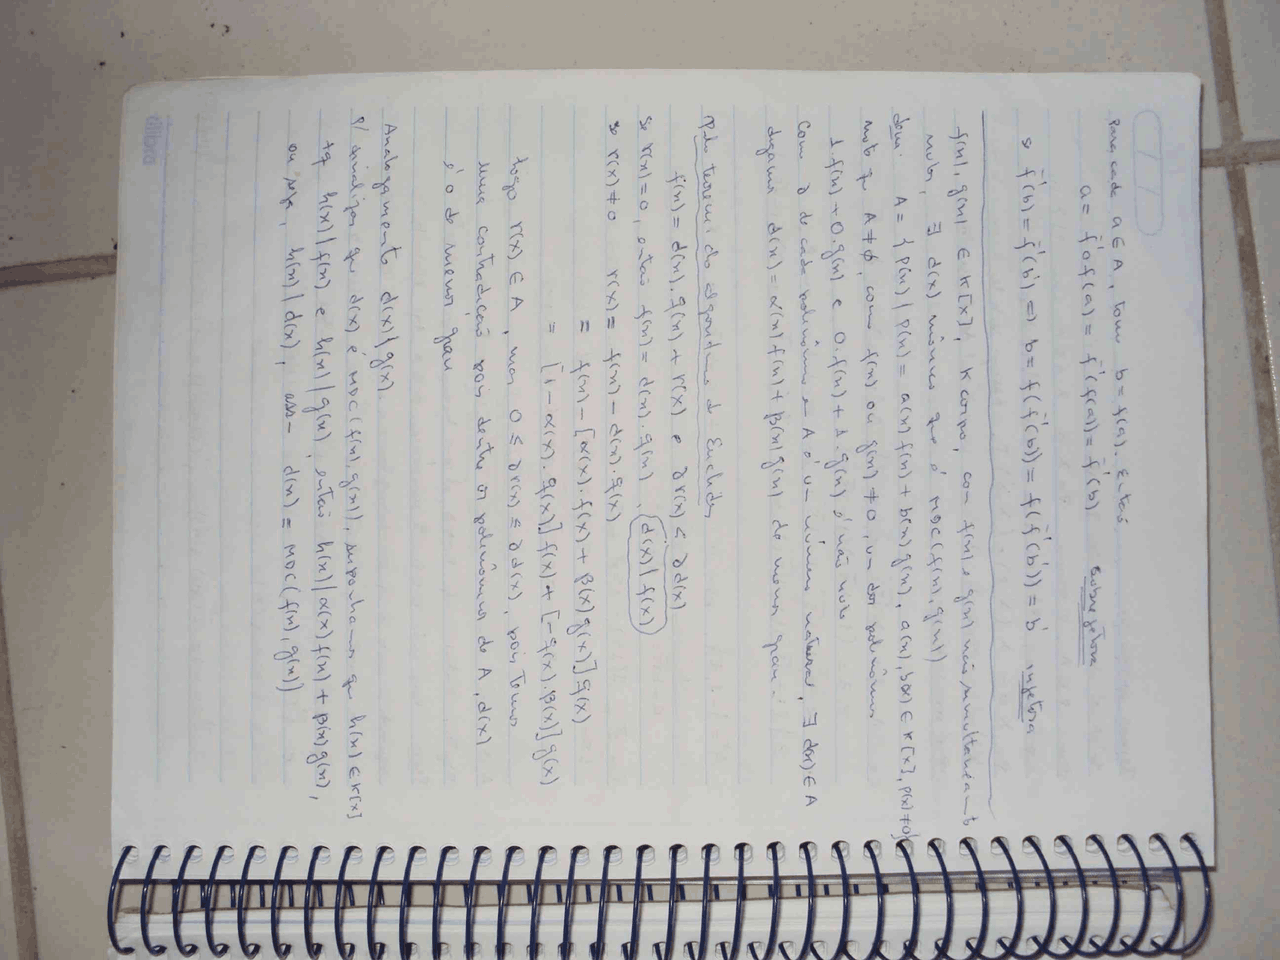 Para cada a ∈ A, tome b = f(a). Então
a = f⁻¹∘f(a) = f⁻¹(f(a)) = f⁻¹(b) sobrejetora
se f⁻¹(b) = f⁻¹(b') ⇒ b = f(f⁻¹(b)) = f(f⁻¹(b')) = b' injetora
f(x), g(x) ∈ K[x], K corpo, com f(x) e g(x) não simultaneamente
nulos, ∃ d(x) mônico que é MDC(f(x), g(x))
dem: A = {p(x) / p(x) = a(x) f(x) + b(x) g(x), a(x), b(x) ∈ K[x], p(x) ≠ 0}
note que A ≠ ∅, como f(x) ou g(x) ≠ 0, um dos polinômios
1.f(x) + 0.g(x) e 0.f(x) + 1.g(x) é não nulo
Com ∂ de cada polinômio em A é um número natural, ∃ d(x) ∈ A
digamos d(x) = α(x) f(x) + β(x) g(x) de menor grau.
Pelo teorema do algoritmo de Euclides
f(x) = d(x).q(x) + r(x) e ∂r(x) < ∂d(x)
se r(x) = 0, então f(x) = d(x).q(x), d(x) | f(x)
se r(x) ≠ 0 r(x) = f(x) - d(x).q(x)
= f(x) - [α(x).f(x) + β(x) g(x)] q(x)
= [1 - α(x).q(x)] f(x) + [-q(x).β(x)] g(x)
Logo r(x) ∈ A, mas 0 ≤ ∂r(x) ≤ ∂d(x), pois temos
uma contradição pois dentre os polinômios de A, d(x)
é o de menor grau
Analogamente d(x) | g(x).
P/ sinalizar que d(x) é MDC(f(x), g(x)), suponhamos que h(x) ∈ K[x]
tq h(x) | f(x) e h(x) | g(x), então h(x) | α(x) f(x) + β(x) g(x),
ou seja, h(x) | d(x), assim d(x) = MDC(f(x), g(x))